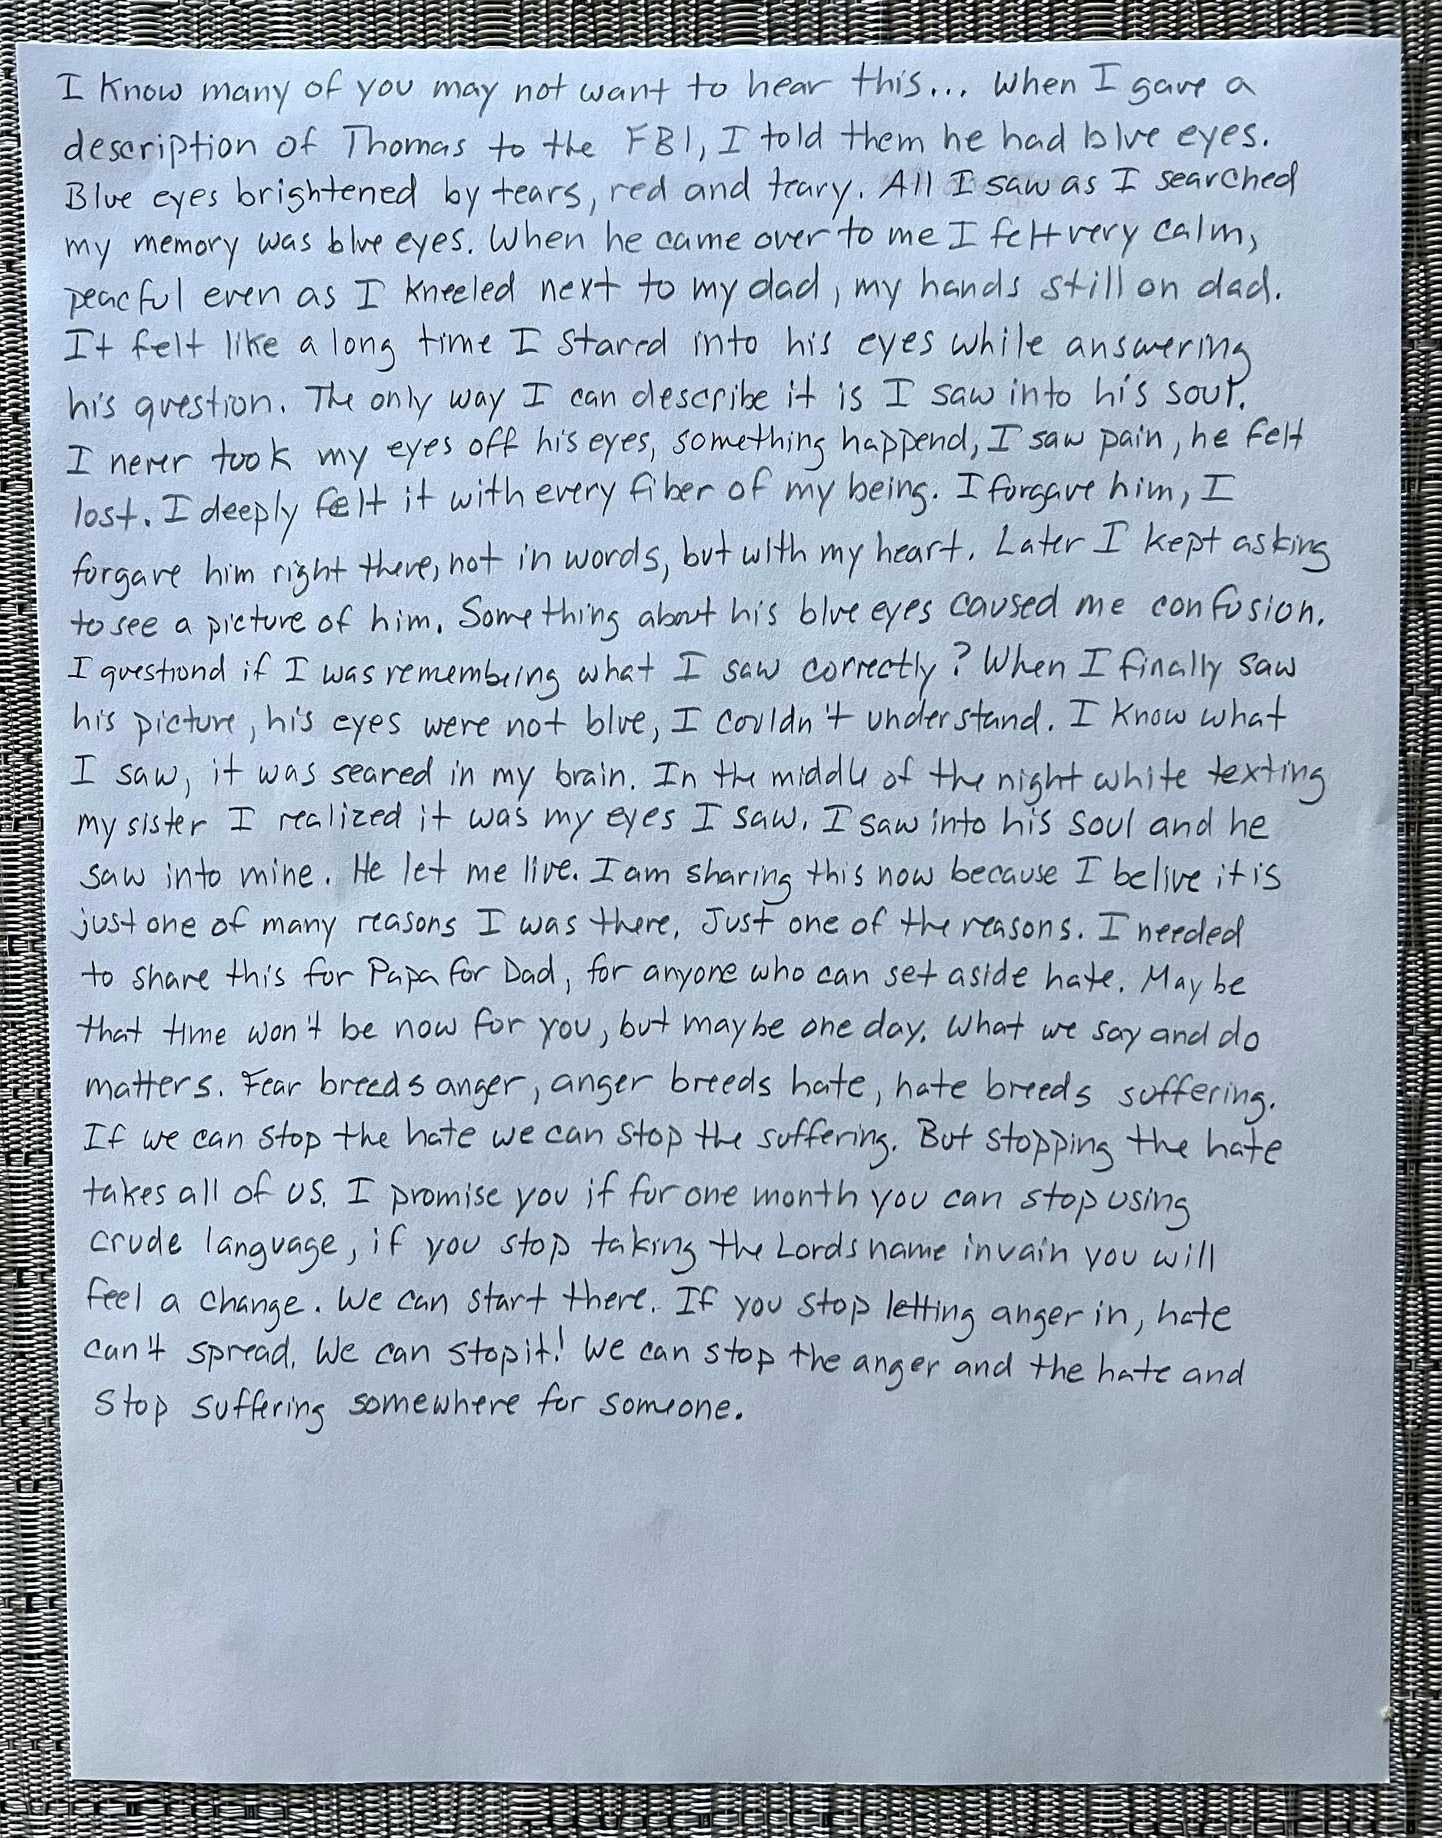 I Know many of you may not want to hear this... When I gave a
description of Thomas to the FBI, I told them he had blue eyes.
Blue eyes brightened by tears, red and teary. All I saw as I searched
my memory was blue eyes. When he came over to me I felt very calm,
peacful even as I kneeled next to my dad, my hands still on dad.
It felt like a long time I stared into his eyes while answering
his question. The only way I can describe it is I saw into his soul.
I never took my eyes off his eyes, something happend, I saw pain, he felt
lost. I deeply felt it with every fiber of my being. I forgave him, I
forgave him right there, not in words, but with my heart. Later I kept asking
to see a picture of him. Something about his blue eyes caused me confusion.
I questiond if I was remembeing what I saw correctly? When I finally saw
his picture, his eyes were not blue, I couldn't understand. I know what
I saw, it was seared in my brain. In the middle of the night white texting
my sister I realized it was my eyes I saw. I saw into his soul and he
saw into mine. He let me live. I am sharing this now because I belive it is
just one of many reasons I was there. Just one of the reasons. I needed
to share this for Papa for Dad, for anyone who can set aside hate. May be
that time won't be now for you, but maybe one day. What we say and do
matters. Fear breeds anger, anger breeds hate, hate breeds suffering.
If we can stop the hate we can stop the suffering. But stopping the hate
takes all of us. I promise you if for one month you can stop using
crude language, if you stop taking the Lords name in vain you will
feel a change. We can start there. If you stop letting anger in, hate
can't spread. We can stop it! We can stop the anger and the hate and
stop suffering somewhere for someone.